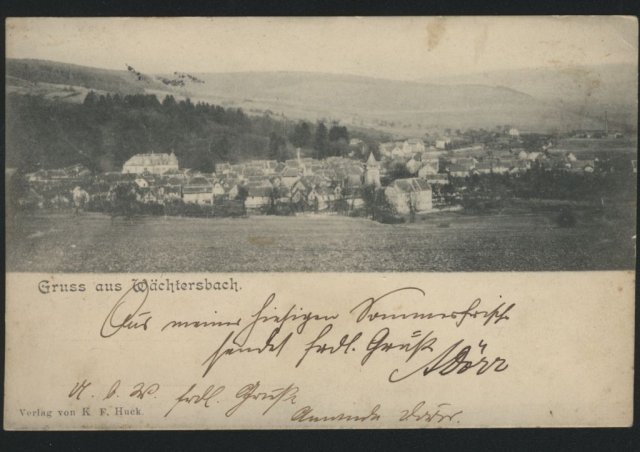 Gruss aus Wächtersbach.
Aus meiner hiesigen Sommerfrische
sendet frdl. Gruß
ADörr
U. b. W. frdl. Gruß.
Amanda Dörr.
Verlag von K. F. Huck